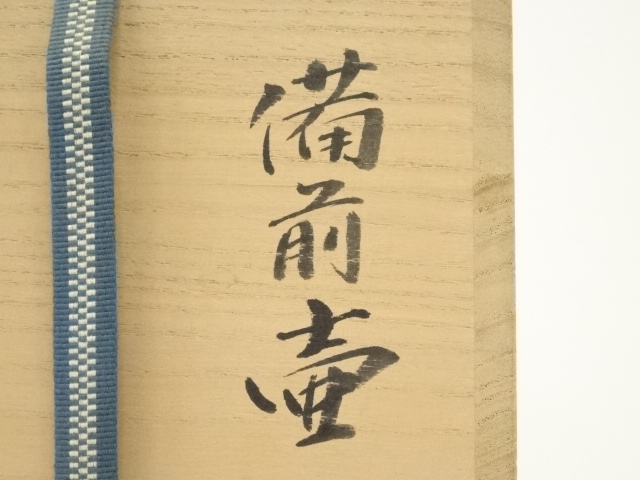 備前壺